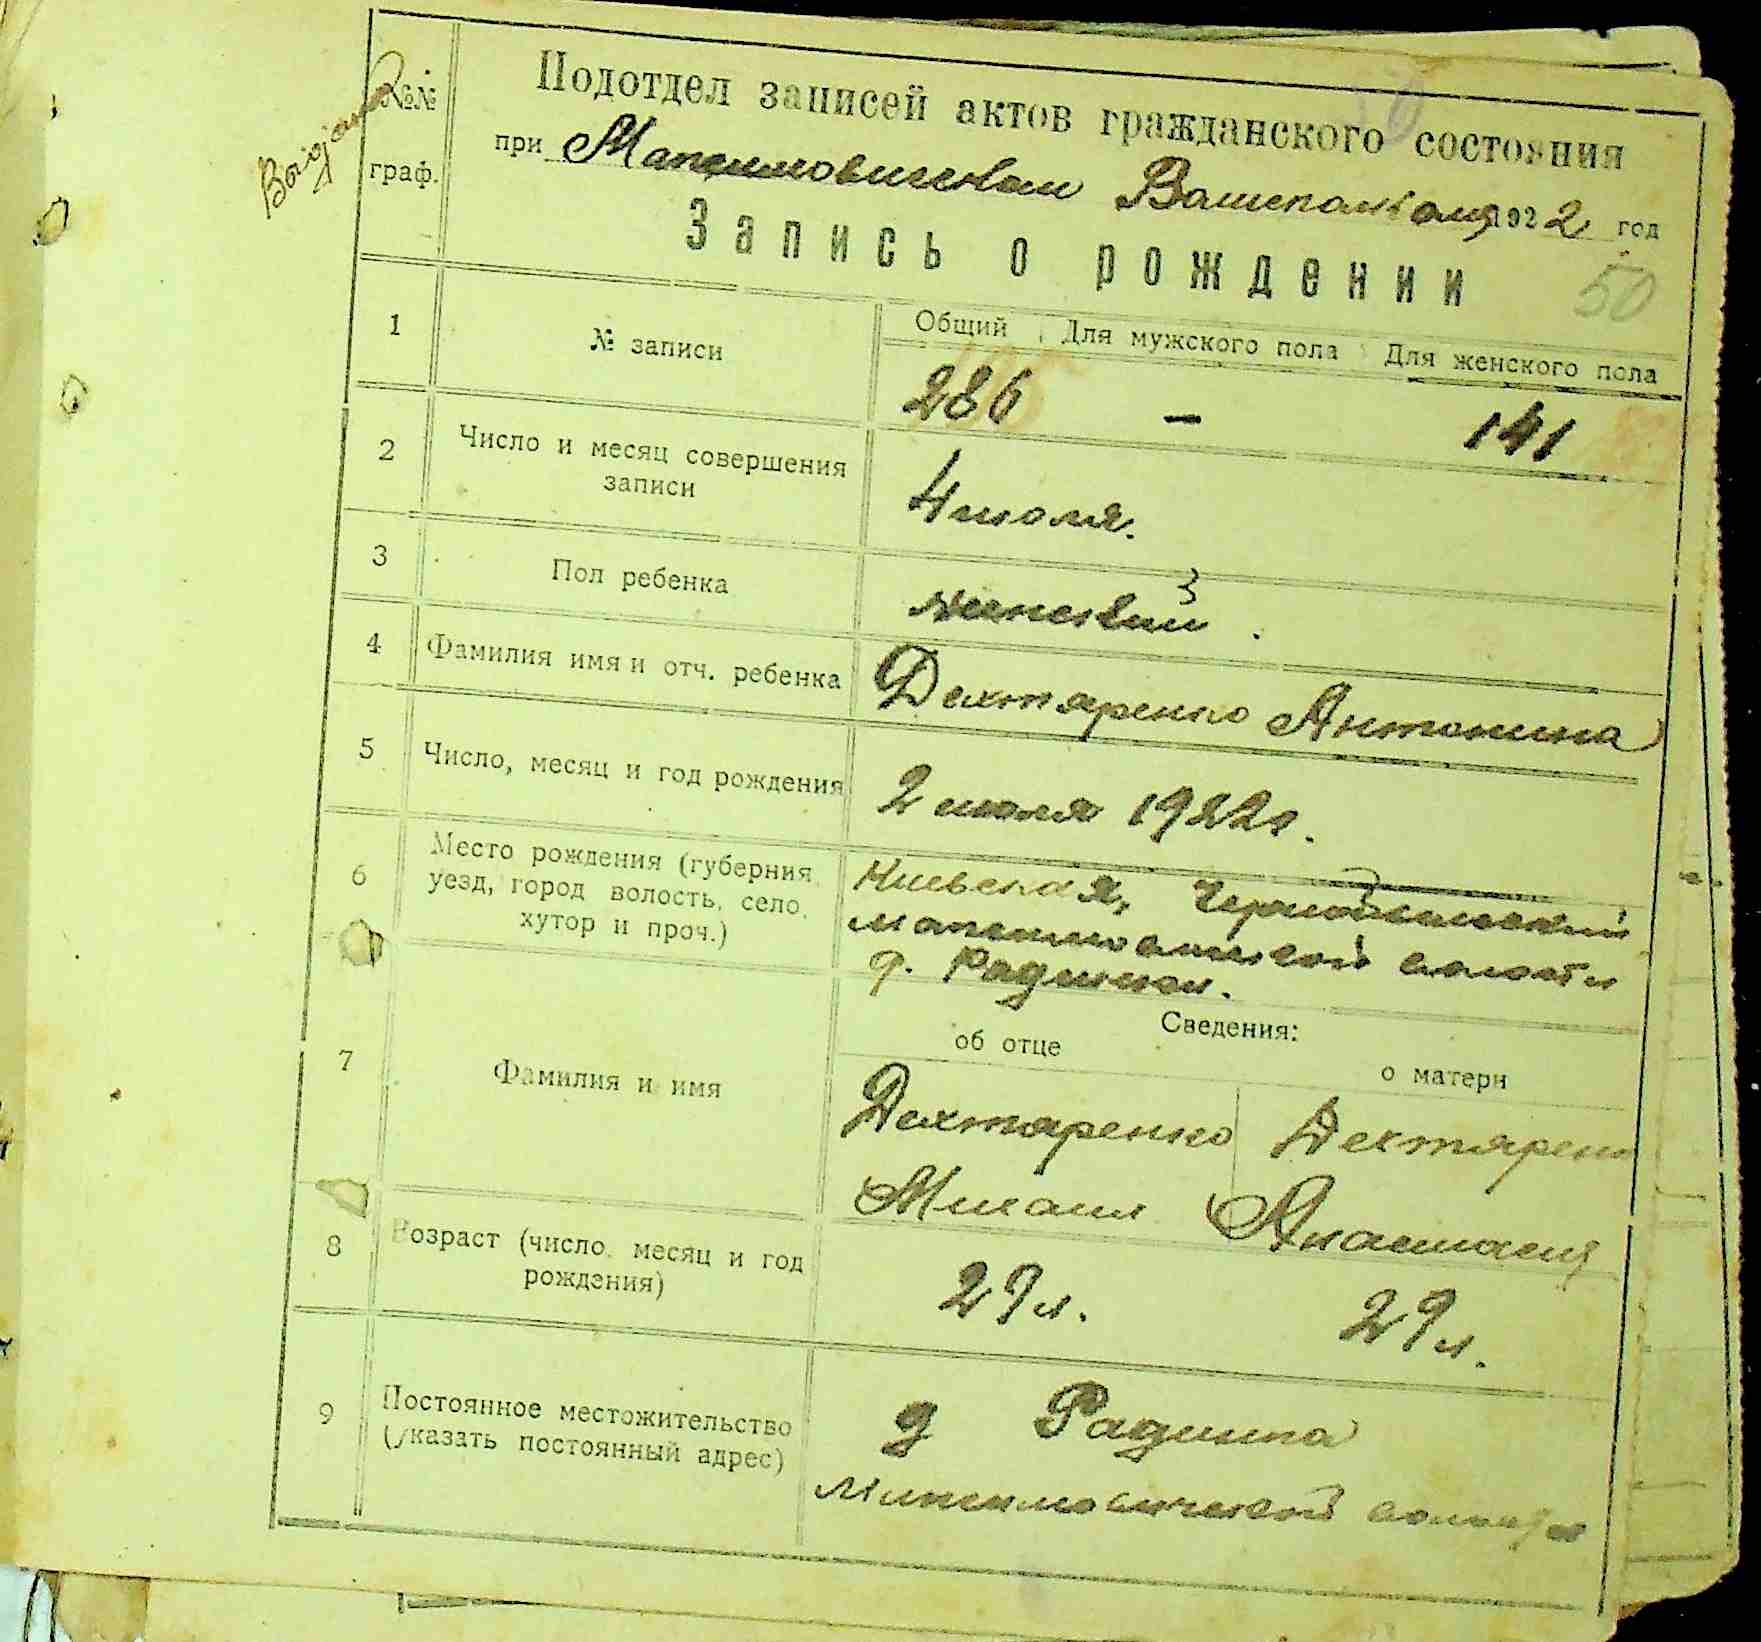 №№
граф.
Подотдел записей актов гражданского состояния
при Максимовическом 1922 год
Запись о рождении
50
1
№ записи
Общий Для мужского пола Для женского пола
286 – 141
2
Число и месяц совершения
записи
4 июля.
3
Пол ребенка
женский.
4
Фамилия имя и отч. ребенка
Дехтяренко Антонина
5
Число, месяц и год рождения
2 июля 1922 г.
6
Место рождения (губерния
уезд, город волость, село,
хутор и проч.)
Киевская, Чернобыльский
Максимовической волости
д. Радинка.
Сведения:
об отце
о матери
7
Фамилия и имя
Дехтяренко
Михаил
Дехтярен
Анастасия
8
Возраст (число, месяц и год
рождения)
27 л.
29 л.
9
Постоянное местожительство
(указать постоянный адрес)
д Радинка
Максимовической волости